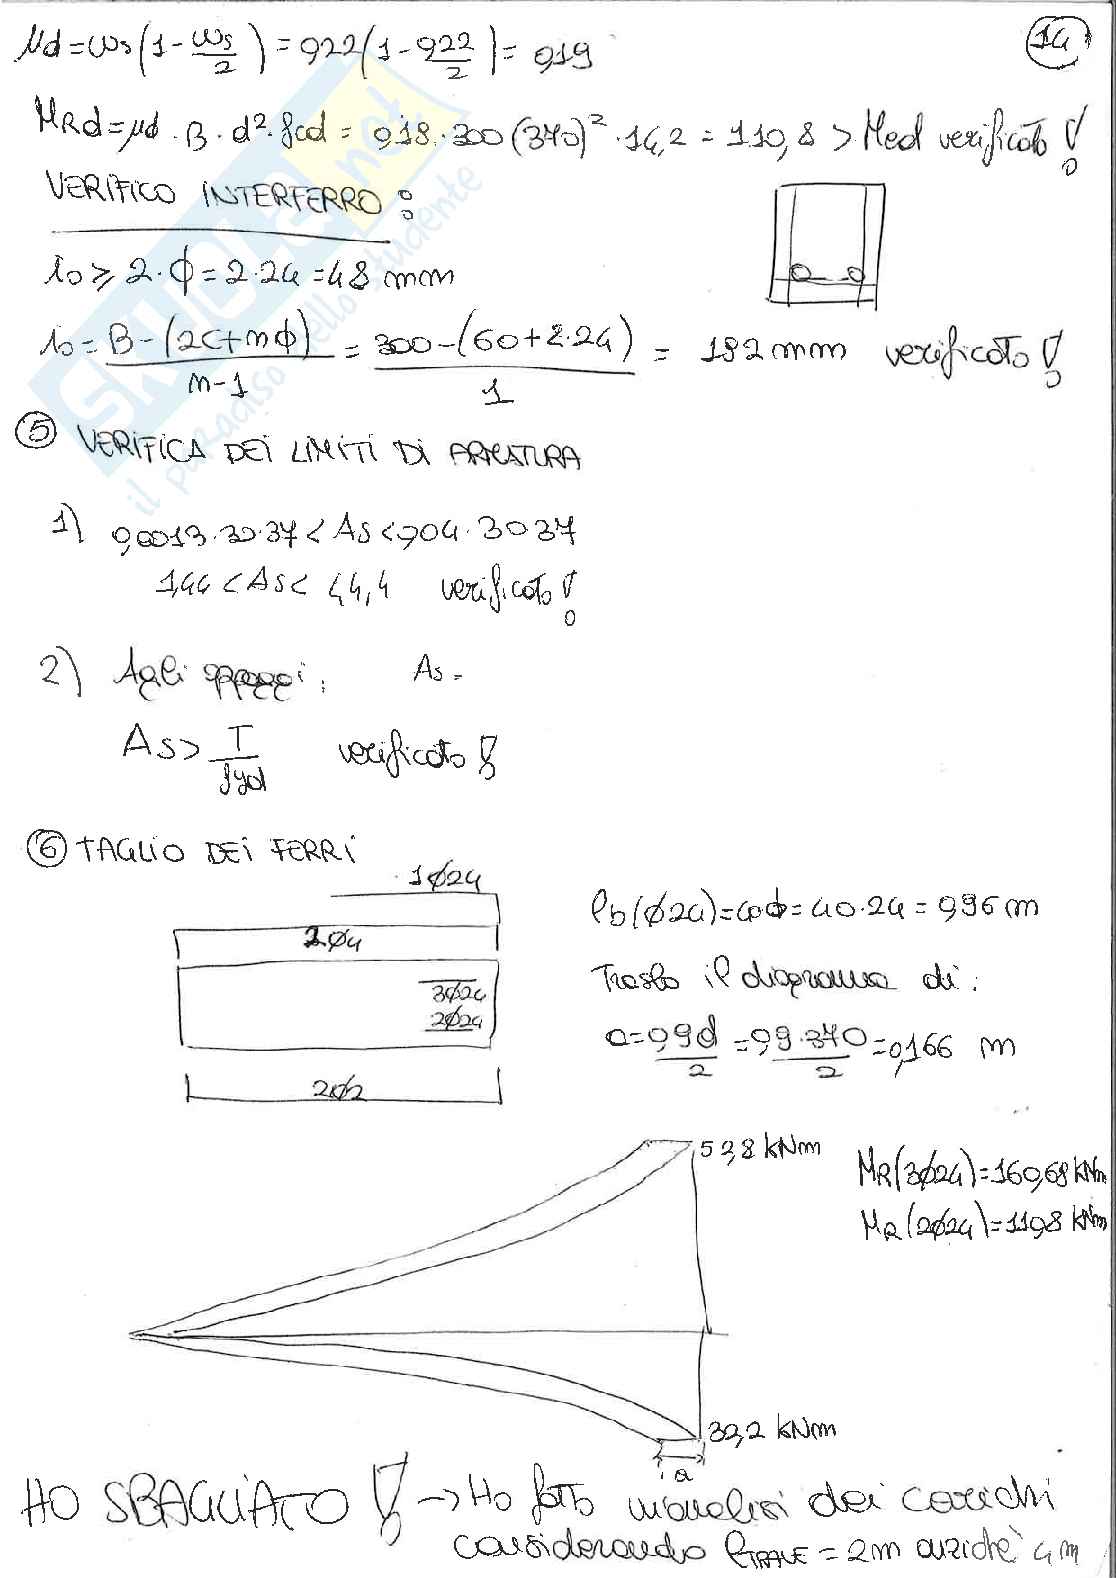 14
μd = ωs(1 - ωs/2) = 0,22(1 - 0,22/2) = 0,19
MRd = μd · B · d² · fcd = 0,18 · 300 (370)² · 14,2 = 110,8 > Med verificato!
VERIFICO INTERFERRO:
io ≥ 2·ϕ = 2·24 = 48 mm
io = B - (2C + nϕ) / n-1 = 300 - (60 + 2·24) / 1 = 192 mm verificato!
⑤ VERIFICA DEI LIMITI DI ARMATURA
1) 0,0013·30·37 < As < 0,04·30 37
1,44 < As < 44,4 verificato!
2) Agli appoggi: As =
As > T/fyd verificato!
⑥ TAGLIO DEI FERRI
1ϕ24
2ϕ4
3ϕ24
2ϕ24
2ϕ2
lb(ϕ24) = 40ϕ = 40·24 = 0,96 m
Traslo il diagramma di:
a = 0,9d/2 = 0,9·370/2 = 0,166 m
53,8 kNm
MR(3ϕ24) = 160,68 kNm
MR(2ϕ24) = 110,8 kNm
32,2 kNm
a
HO SBAGLIATO! → Ho fatto l'analisi dei carichi
considerando lTRAVE = 2m anziché 4m
SKUOLA.net
il paradiso dello studente